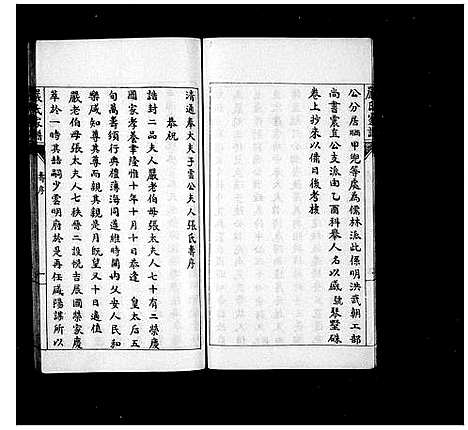 嚴氏家譜
公分居晒甲兜等處為儒林派此係明洪武朝工部
尚書震直公支派由乙酉科舉人名以盛號琴墅硃
卷上抄來以備日後考核
清通奉大夫子雲公夫人張氏壽序
恭祝
誥封二品夫人嚴老伯母張太夫人七十有二榮慶
國家孝養聿隆惟十年十月十日恭逢 皇太后五
旬萬壽頒行典禮薄海同遵維時闔內乂安人民和
樂咸知尊其尊而親其親是月既望又十日適值
嚴老伯母張太夫人七秩晉二設帨吉辰國榮家慶
萃於一時其嗣少雲明府於是再任咸陽謀所以
嚴氏家譜
壽序